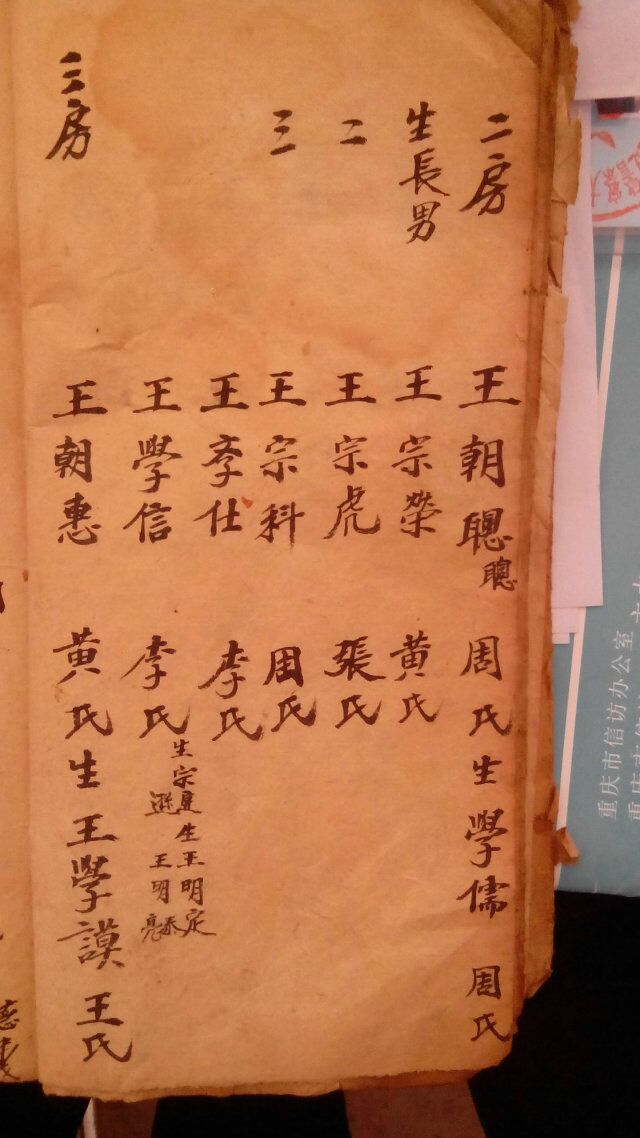 二房 王朝聰聰 周氏生學儒 周氏
生長男 王宗榮 黄氏
二 王宗虎 張氏
三 王宗科 周氏
王孝仕 李氏
王學信 李氏
生宗 生王明定
王明亮
三房 王朝惠 黄氏生王學謨 王氏
重庆市信访办公室